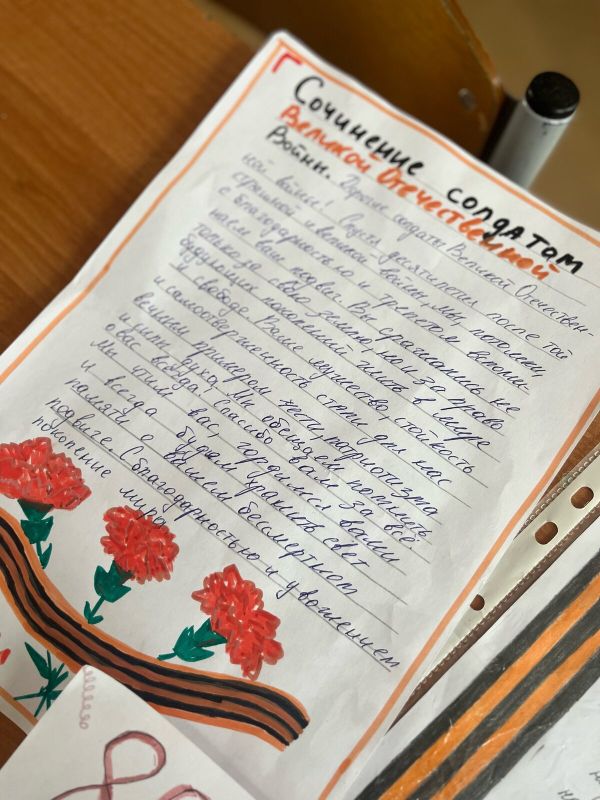 Сочинение солдатам
Великой Отечественной
Войны. Дорогие солдаты Великой Отечествен-
ной войны! Спустя десятилетия после той
страшной и великой войны, мы, потомки
с благодарностью и трепетом вспоми-
наем ваш подвиг. Вы сражались не
только за свою землю, но и за право
будующих поколений жить в мире
и свободе. Ваше мужество, стойкость
и самоотверженность стали для нас
вечным примером чести, патриотизма
и силы духа. Мы обещаем помнить
о вас всегда! Спасибо вам за всё.
Мы чтим вас, гордимся вами
и всегда будем хранить свет
памяти о вашем бессмертном
подвиге. С благодарностью и уважением
поколение мира